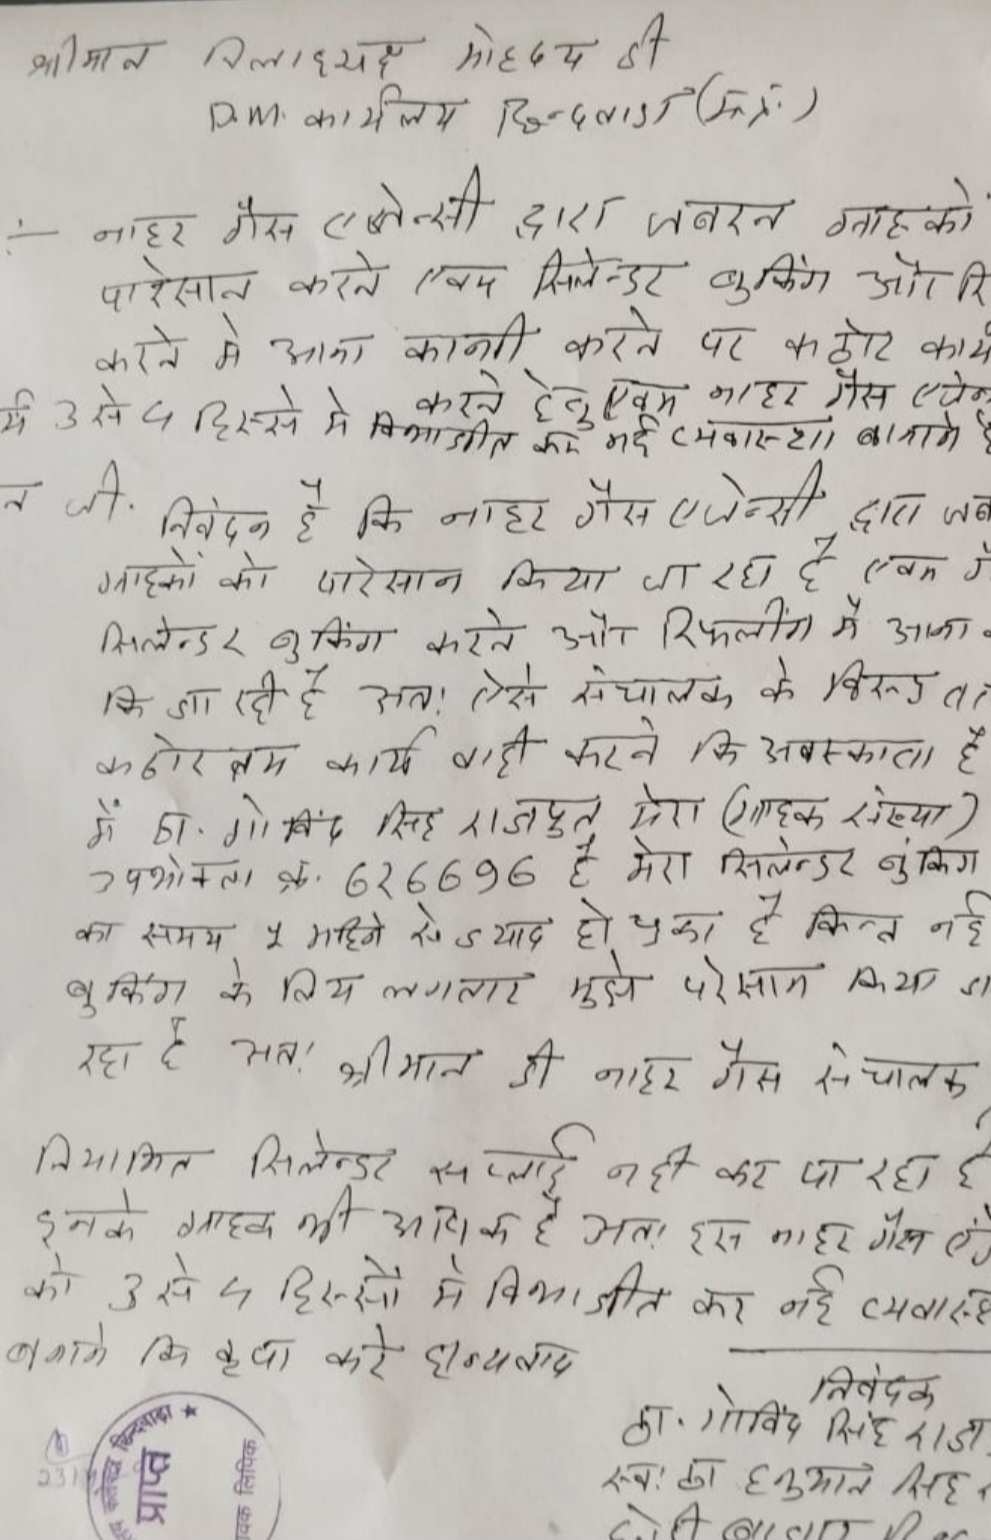 श्रीमान जिलाध्यक्ष मोहदय जी
D.M. कार्यालय छिन्दवाडा (म.प्र.)
:- नाहर गैस एजेन्सी द्वारा जबरन ग्राहको
पारेसान करने एवम सिलेन्डर बुकिंग और रि
करने मे आना कानी करने पर कठोर कार्य
करने हेतु एवम नाहर गैस एजेन
3 से 4 हिस्से मे विभाजीत कर नई व्यवास्था बानाने है
न जी. निवेदन है कि नाहर गैस एजेन्सी द्वारा जब
ग्राहकों को पारेसान किया जा रहा है एवम गै
सिलेन्डर बुकिंग करने और रिफलींग मे आना
कि जा रही है अत! ऐसे संचालक के विरूद्ध
कठोरतम कार्य वाही करने कि अवस्काता है
में ठा. गोविंद सिंह राजपुत मेरा (ग्राहक संख्या)
उपभोक्ता क्र. 626696 है मेरा सिलेन्डर बुंकिग
का समय महिने से ज्याद हो चुका है किन्त नई
बुकिंग के लिय लगातार मुझे परेसान किया जा
रहा है अत! श्रीमान जी नाहर गैस संचालक
नियामित सिलेन्डर सप्लाई नही कर पा रहा है
इनके ग्राहक भी अधिक है अत! इस नाहर गैस ऐजे
को 3 से 4 हिस्सों मे विभाजीत कर नई व्यवास्थ
बानाने कि कृपा करे धन्यवाद
निवेदक
ठा. गोविंद सिंह राजा
स्व! ठा हनुमान सिह
प्राप्त
छिन्दवाड़ा ★
वक लिपिक